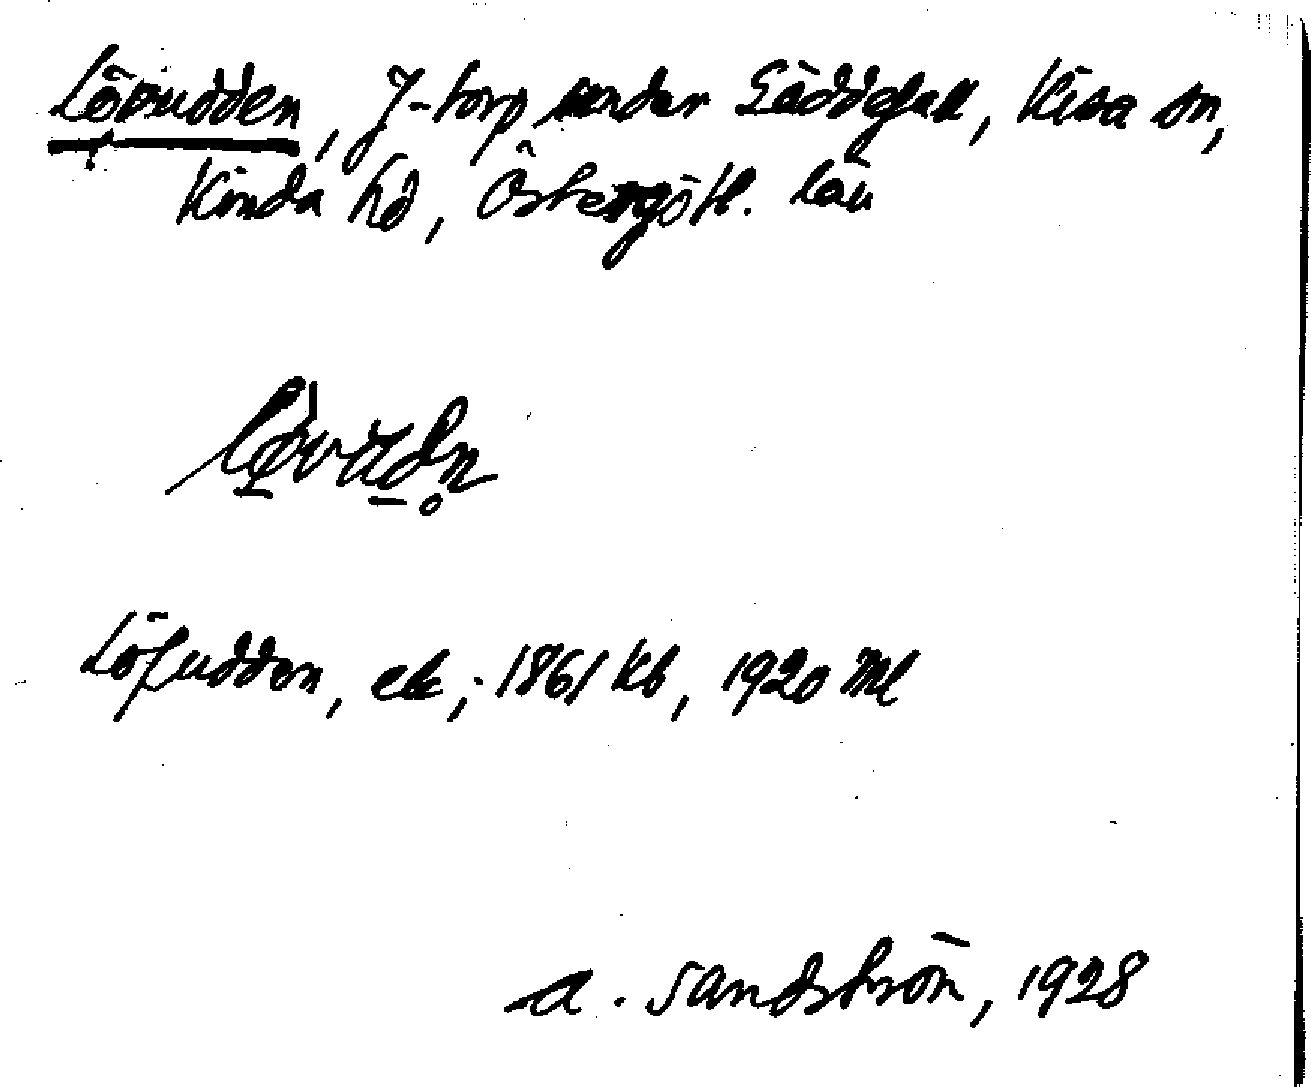 Lövudden, J-torp under Gäddefall, Kisa sn,
Kinda hd, Östergötl. län
Löfudden, etc; 1861 Kb, 1920 Ml
A. Sandström, 1928